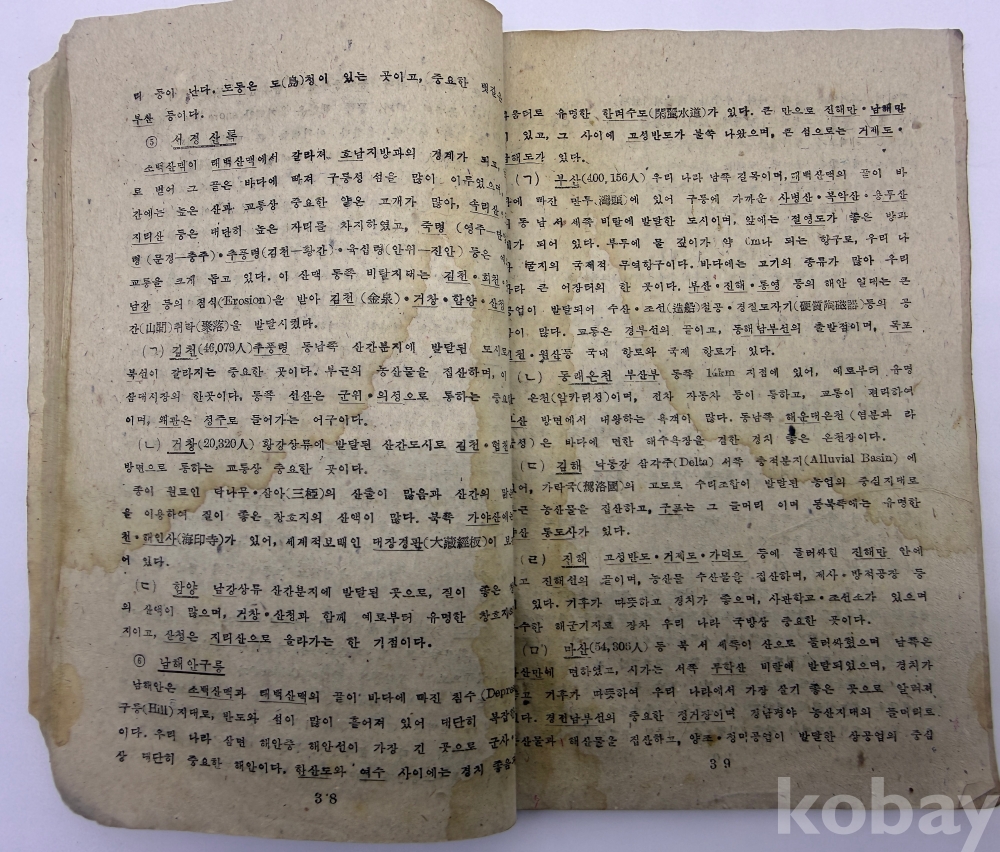 리 등이 난다. 도동은 도(島)청이 있는 곳이고, 중요한 뱃길은
부산 등이다.
⑤ 서경산록
소백산맥이 태백산맥에서 갈라져 호남지방과의 경계가 되고,
로 벋어 그 끝은 바다에 빠져 구릉성 섬을 많이 이루었으며,
간에는 높은 산과 교통상 중요한 얕은 고개가 많아, 속리산·
지리산 등은 대단히 높은 자리를 차지하였고, 죽령 (영주—단
령 (문경—충주)·추풍령(김천—황간)·육십령(안위—진안) 등은
교통을 크게 돕고 있다. 이 산맥 동쪽 비탈지대는 김천·회천·
남강 등의 침식(Erosion)을 받아 김천 (金泉)·거창·함양·산청
간(山間)취락(聚落)을 발달시켰다.
(ㄱ) 김천(46,079人)추풍령 동남쪽 산간분지에 발달된 도시로
북선이 갈라지는 중요한 곳이다. 부근의 농산물을 집산하며, 이
삼대시장의 한곳이다, 동쪽 선산은 군위·의성으로 통하는 중요
이며, 왜관은 성주로 들어가는 어구이다.
(ㄴ) 거창(20,320人) 황강상류에 발달된 산간도시로 김천·협천
방면으로 통하는 교통상 중요한 곳이다.
종이 원료인 닥나무·삼아(三椏)의 산출이 많음과 산간의 맑은
을 이용하여 질이 좋은 창호지의 산액이 많다. 북쪽 가야산에는
천·해인사(海印寺)가 있어, 세계적보배인 대장경판(大藏經板)이 보
어 있다.
(ㄷ) 함양 남강상류 산간분지에 발달된 곳으로, 질이 좋은
의 산액이 많으며, 거창·산청과 함께 예로부터 유명한 창호지
지이고, 산청은 지리산으로 올라가는 한 기점이다.
⑥ 남해안구릉
남해안은 소백산맥과 태백산맥의 끝이 바다에 빠진 침수(Depre
구릉(Hill)지대로, 반도와 섬이 많이 흩어져 있어 대단히 복잡
이다. 우리 나라 삼면 해안중 해안선이 가장 긴 곳으로 군사
상 대단히 중요한 해안이다. 한산도와 여수 사이에는 경치 좋음
38
음더로 유명한 한려수도(閑麗水道)가 있다. 큰 만으로 진해만·남해만
이 있고, 그 사이에 고성반도가 불쑥 나왔으며, 큰 섬으로는 거제도·
남해도가 있다.
(ㄱ) 부산(400,156人) 우리 나라 남쪽 길목이며, 태백산맥의 끝이 바
에 빠진 만두(灣頭)에 있어 구릉에 가까운 사병산·복악산·용두산
동 남 서 세쪽 비탈에 발달한 도시이며, 앞에는 절영도가 좋은 방파
가 되어 있다. 부두에 물 깊이가 약 m나 되는 항구로, 우리 나
라 남지의 국제적 무역항구이다. 바다에는 고기의 종류가 많아 우리
나라 큰 어장터의 한 곳이다. 부산·진해·통영 등의 해안 일대는 큰
공업이 발달되어 수산·조선(造船)철공·경질도자기(硬質陶磁器)등의 공
이 많다. 교통은 경부선의 끝이고, 동해남부선의 출발점이며, 목포
인천·원산등 국내 항로와 국제 항로가 있다.
(ㄴ) 동래온천 부산부 동쪽 14km 지점에 있어, 예로부터 유명
한 온천(알카리성)이며, 전차 자동차 등이 통하고, 교통이 편리하여
부산 방면에서 내왕하는 욕객이 많다. 동남쪽 해운대온천 (염분과 라
성) 은 바다에 면한 해수욕장을 겸한 경치 좋은 온천장이다.
(ㄷ) 김해 낙동강 삼각주(Delta) 서쪽 충적분지(Alluvial Basin) 에
있어, 가락국(駕洛國)의 고도로 수리조합이 발달된 농업의 중심지대로
부근 농산물을 집산하고, 구포는 그 들머리 이며 동북쪽에는 유명한
양산 통도사가 있다.
(ㄹ) 진해 고성반도·거제도·가덕도 등에 둘러싸힌 진해만 안에
있고 진해선의 끝이며, 농산물 수산물을 집산하며, 제사·방적공장 등
이 있다. 기후가 따뜻하고 경치가 좋으며, 사관학교·조선소가 있으며
우수한 해군기지로 장차 우리 나라 국방상 중요한 곳이다.
(ㅁ) 마산(54,305人) 등 북 서 세쪽이 산으로 둘러싸혔으며 남쪽은
마산만에 면하였고, 시가는 서쪽 무학산 비탈에 발달되었으며, 경치가
좋고 기후가 따뜻하여 우리 나라에서 가장 살기 좋은 곳으로 알려져
있다. 경전남부선의 중요한 정거장이며 경남평야 농산지대의 들머리로
농산물과 해산물을 집산하고, 양조·정미공업이 발달한 상공업의 중심
39
kobay